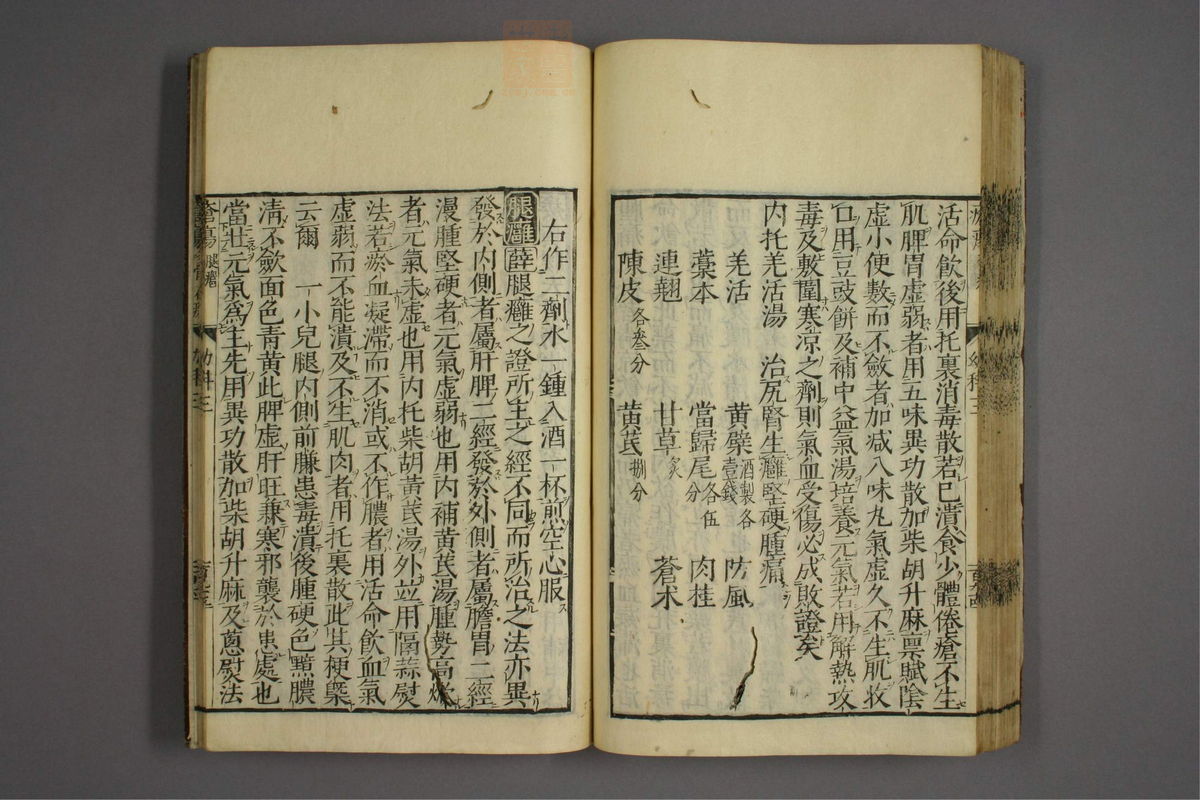 活命飲後用托裏消毒散若已潰食少體倦瘡不生
肌脾胃虛弱者用五味異功散加柴胡升麻稟賦陰
虛小便數而不斂者加减八味丸氣虛久不生肌收
口用豆豉餅及補中益氣湯培養元氣若用解熱攻
毒及敷圍寒凉之劑則氣血受傷必成敗證矣
內托羌活湯 治尻臀生癰堅硬腫痛
羌活 黃蘗酒製各壹錢 防風
藁本 當歸尾各伍分 肉桂
連翹 甘草炙 蒼术
陳皮各叁分 黃芪捌分
右作二劑水一鍾入酒一杯煎空心服
腿癰 薛腿癰之證所主之經不同而所治之法亦異
發於內側者屬肝脾二經發於外側者屬膽胃二經
漫腫堅硬者元氣虛弱也用內補黃芪湯腫勢高焮
者元氣未虛也用內托柴胡黃芪湯外並用隔蒜熨
法若瘀血凝滯而不消或不作膿者用活命飲血氣
虛弱而不能潰及不生肌肉者用托裏散此其梗槩
云爾 一小兒腿內側前臁患毒潰後腫硬色黯膿
淸不斂面色青黃此脾虛肝旺兼寒邪襲於患處也
當壯元氣爲主先用異功散加柴胡升麻及蔥熨法
瘡瘍 腿癰 幼科三